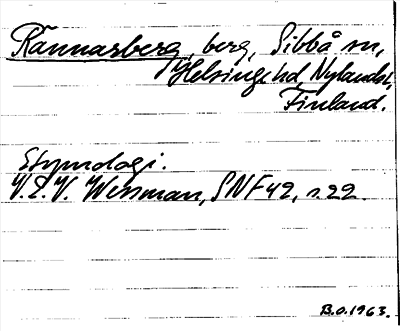 Rannarsberg, berg, Sibbå sn,
Helsinge hd, Nylands l,
Finland.
Etymologi.
V.E.V. Wessman, SNF 42, s. 22.
B.O. 1963.